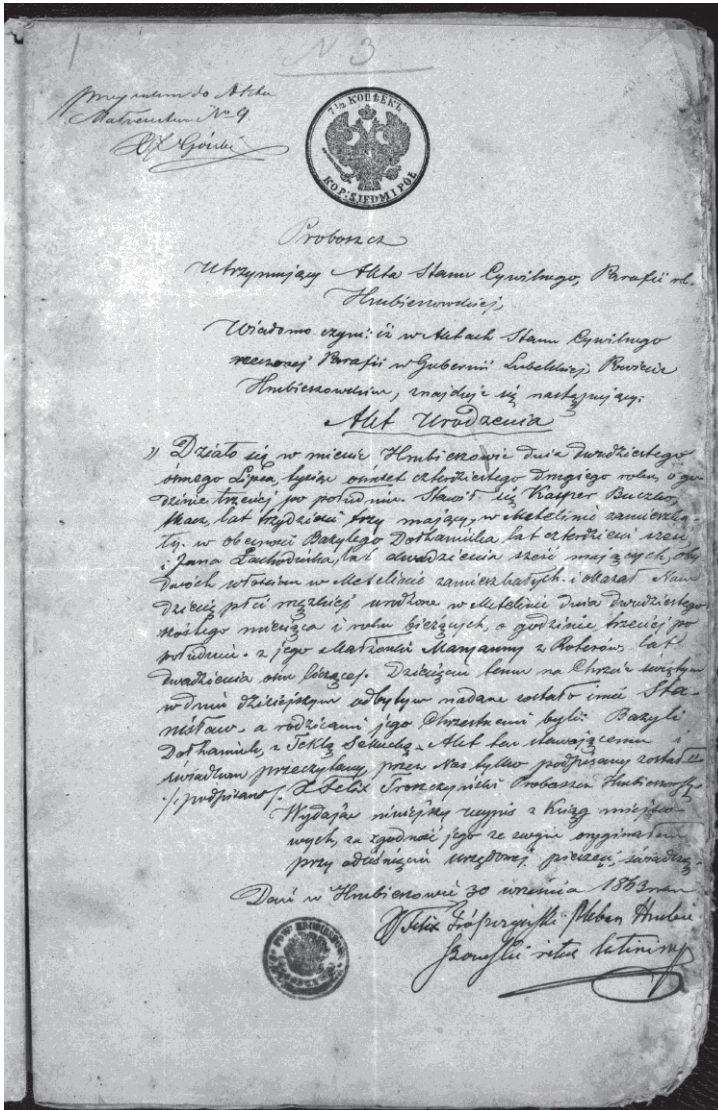 1
N. 3
przyjęłem do Aktu
Małżeństwa No 9.
7 1/2 КОПѢЕКЪ
KOP: SIEDM I PÓŁ
Proboszcz
Utrzymujący Akta Stanu Cywilnego, Parafii rł.
Hrubieszowskiej,
Wiadomo czyni: iż w Aktach Stanu Cywilnego
rzeczonej Parafii w Gubernii Lubelskiej, Powiecie
Hrubieszowskim, znajduje się następujący:
Akt Urodzenia
„ Działo się w mieście Hrubieszowie dnia dwudziestego
ósmego Lipca, tysiąc ośmset czterdziestego drugiego roku, o go-
dzinie trzeciej po południu. Stawił się Kasper Buczko,
tkacz, lat trzydzieści trzy mający, w Metelinie zamieszka-
ły. w obecności Bazylego Dołhaniuka, lat czterdzieści sześć,
i Jana lat dwadzieścia sześć mających, oby-
dwóch włościan w Metelinie zamieszkałych. i okazał Nam
dziecię płci męzkiej urodzone w Metelinie dnia dwudziestego
szóstego miesiąca i roku bieżących, o godzinie trzeciej po
południu. z jego Małżonki Maryanny z Roterów, lat
dwadzieścia ośm liczącej. Dziecięciu temu na Chrzcie świętym
w dniu dzisiejszym odbytym nadane zostało imie Sta-
nisław. a rodzicami jego Chrzestnemi byli: Bazyli
Dołhaniuk, z Teklą Akt ten stawającemu i
świadkom przeczytany, przez Nas tylko podpisany został.
/: podpisano :/ X Felix Troszczyński Proboszcz Hrubieszowski
Wydając niniejszy wypis z Ksiąg miejsco-
wych, za zgodność jego ze swym oryginałem
przy odciśnięciu urzędowej pieczęci, świadczę.
Dan w Hrubieszowie 30 września 1863 roku
X Felix Pleban Hrubie
szowski latini